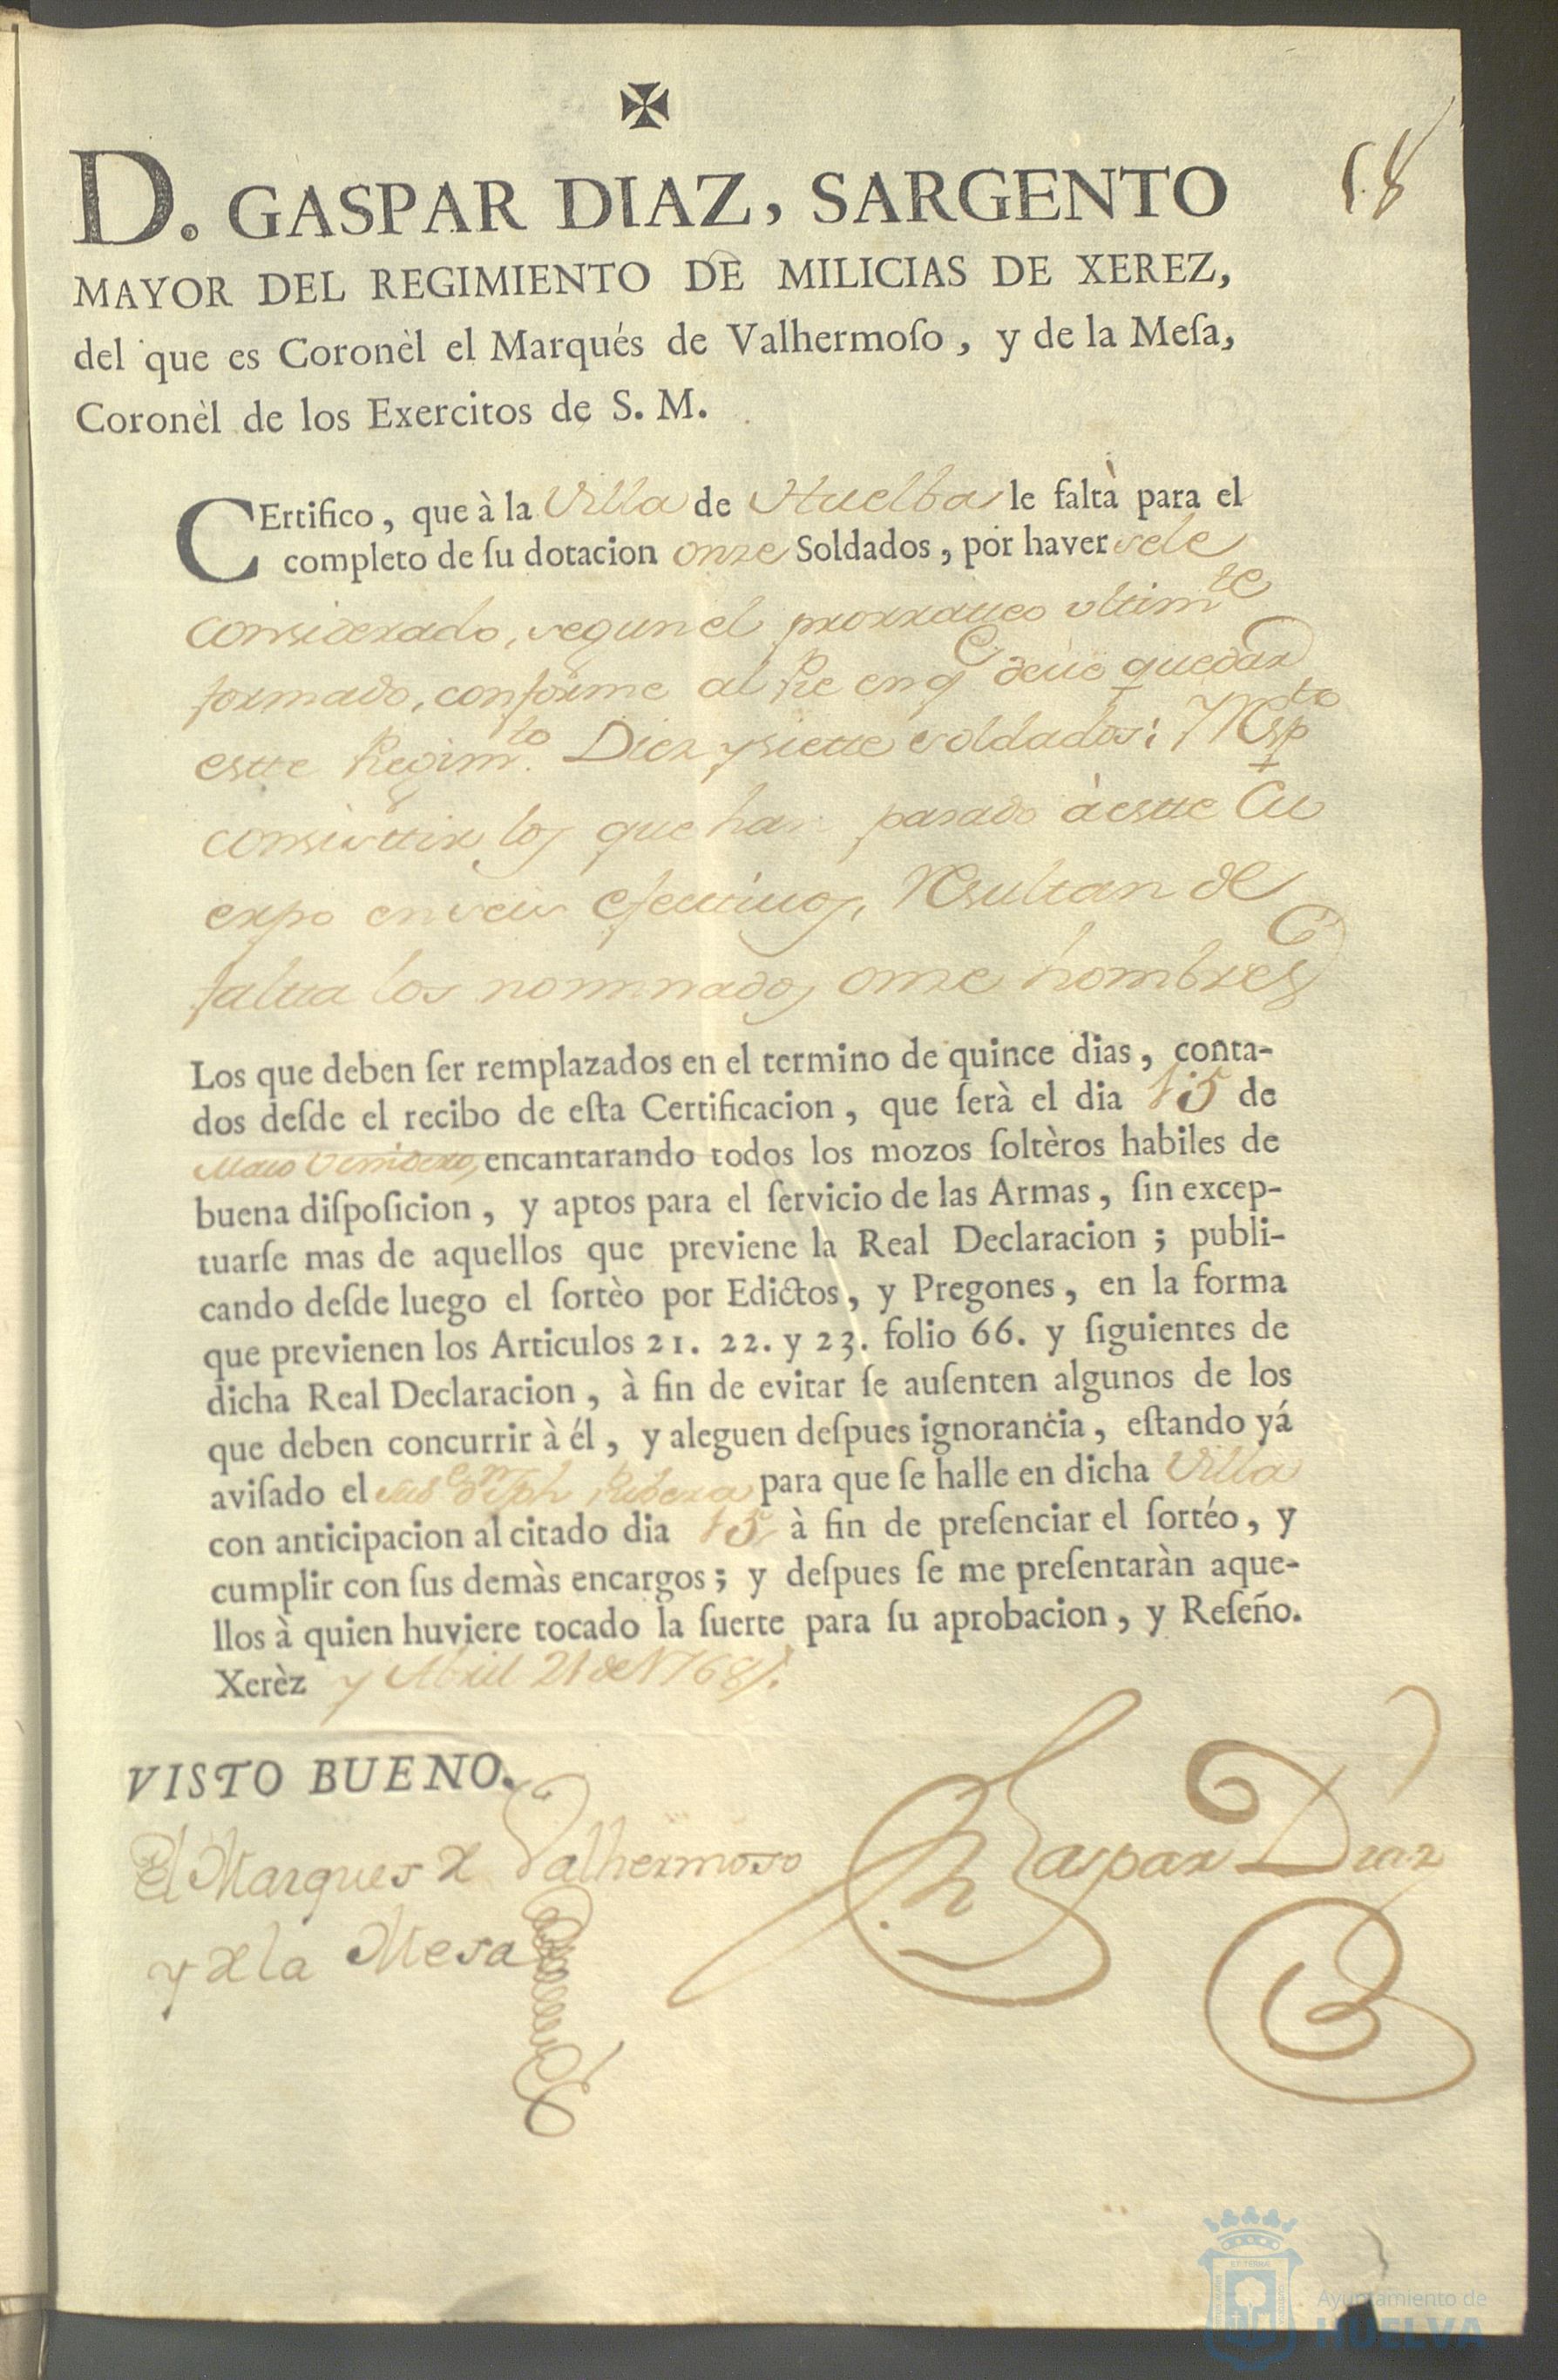 ✠
18
D. GASPAR DIAZ, SARGENTO
MAYOR DEL REGIMIENTO DE MILICIAS DE XEREZ,
del que es Coronèl el Marqués de Valhermoſo, y de la Meſa,
Coronèl de los Exercitos de S. M.
CErtifico, que à la Villa de Huelba le falta para el
completo de ſu dotacion onze Soldados, por haversele
considerado, segun el prorratteo ultimte
formado, conforme al Pie en q deue quedar
estte Regimto. Diez y siette soldados; Respto
consisttir los que han pasado à estte Cu
erpo en seis efecttiuos, Resultan de
faltta los nominados onze hombres
Los que deben ſer remplazados en el termino de quince dias, conta-
dos deſde el recibo de eſta Certificacion, que ſerà el dia 15 de
Maio Venidero, encantarando todos los mozos ſoltèros habiles de
buena diſpoſicion, y aptos para el ſervicio de las Armas, ſin excep-
tuarſe mas de aquellos que previene la Real Declaracion; publi-
cando deſde luego el ſortèo por Edictos, y Pregones, en la forma
que previenen los Articulos 21. 22. y 23. folio 66. y ſiguientes de
dicha Real Declaracion, à fin de evitar ſe auſenten algunos de los
que deben concurrir à él, y aleguen deſpues ignorancia, eſtando yá
aviſado el Ribera para que ſe halle en dicha Villa
con anticipacion al citado dia 15 à fin de preſenciar el ſortéo, y
cumplir con ſus demàs encargos; y deſpues ſe me preſentaràn aque-
llos à quien huviere tocado la ſuerte para ſu aprobacion, y Reſeño.
Xerèz y Abril 21 de 1768.
VISTO BUENO.
El Marques de Valhermoso
y de la Mesa
Gaspar Diaz
Ayuntamiento de
HUELVA